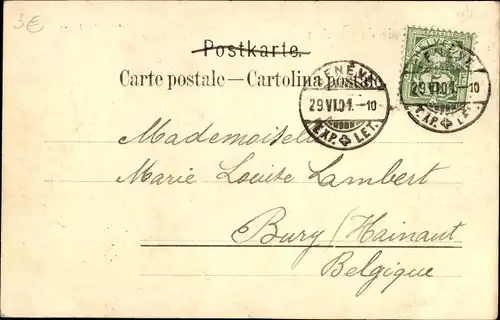 3€
Postkarte.
Carte postale — Cartolina postale
HELVETIA
GENÈVE
29.VI.01.-10
EXP. LET.
GENÈVE
29.VI.01.-10
EXP. LET.
Mademoiselle
Marie Louise Lambert
Bury (Hainaut
Belgique